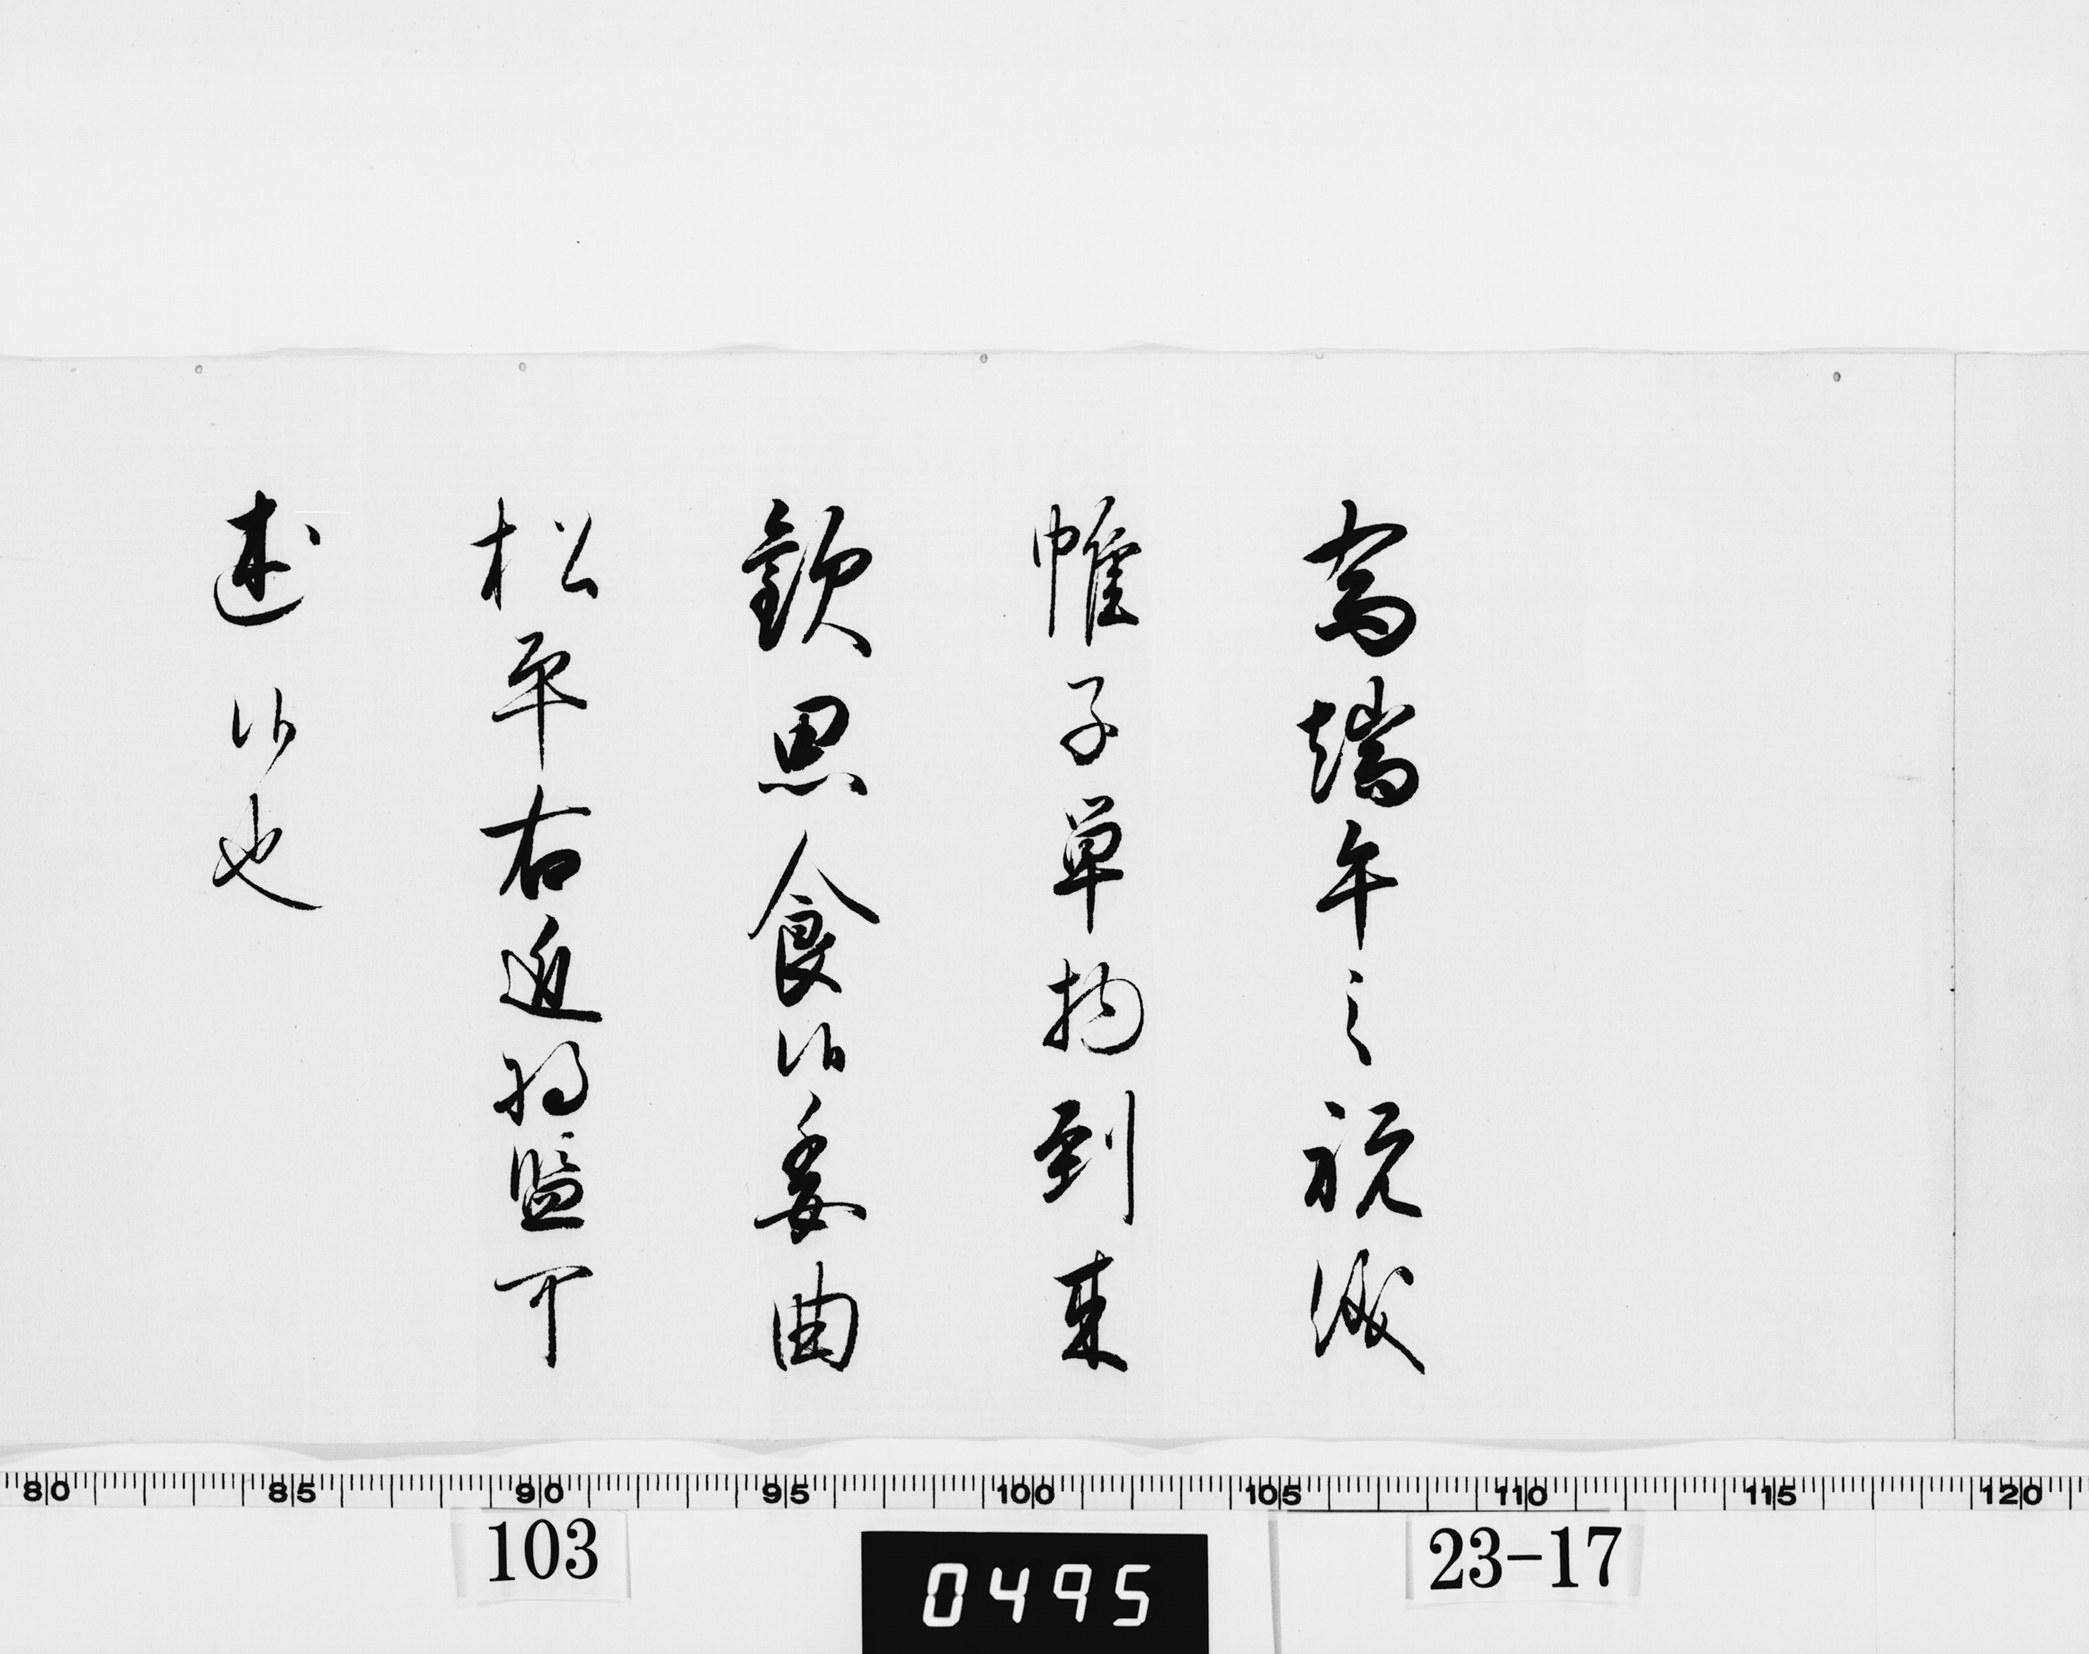 為端午之祝儀
帷子単物到来
歓思食候委曲
松平右近将監可
述候也
80 85 90 95 100 105 110 115 120
103
0495
23-17